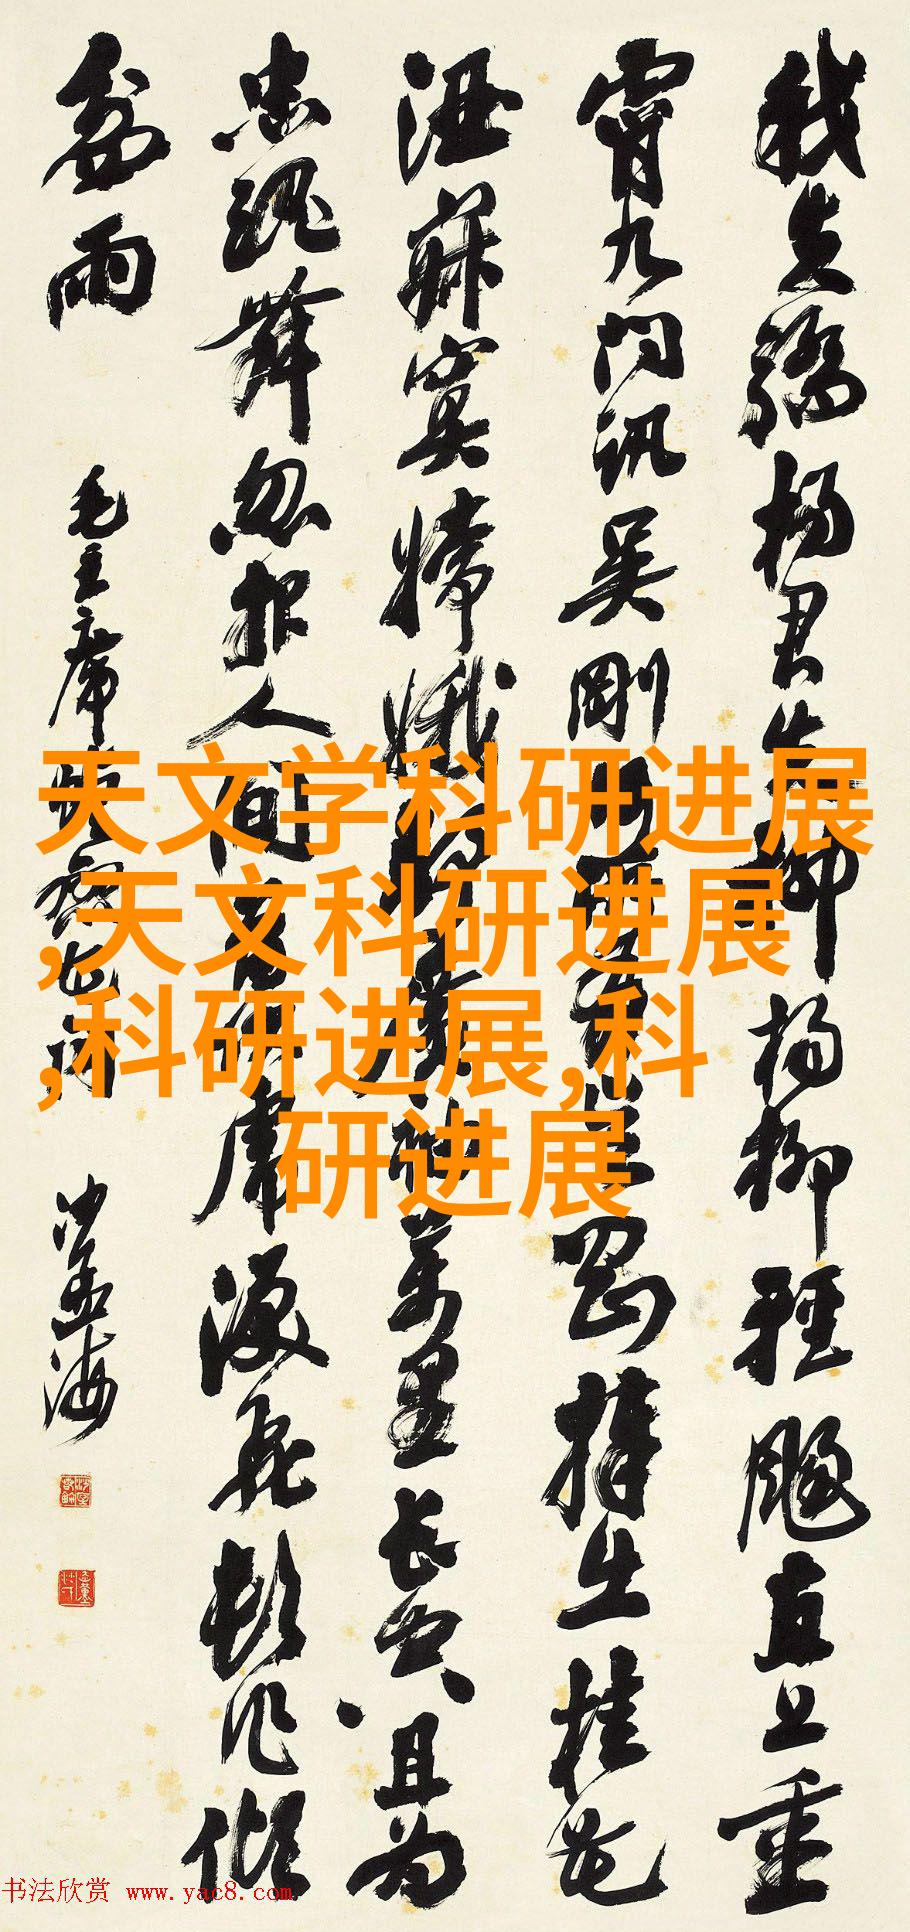 我失驕楊君失柳楊柳輕颺直上重
霄九問訊吴剛何所有吴剛捧出桂花
酒寂寞嫦娥舒廣袖萬里長空且为
忠魂舞忽报人間曾伏虎淚飛頓作傾
盆雨
毛主席蝶恋花词
沙孟海
天文学科研进展
,天文科研进展
,科研进展,科
研进展
书法欣赏 www.yac8.com